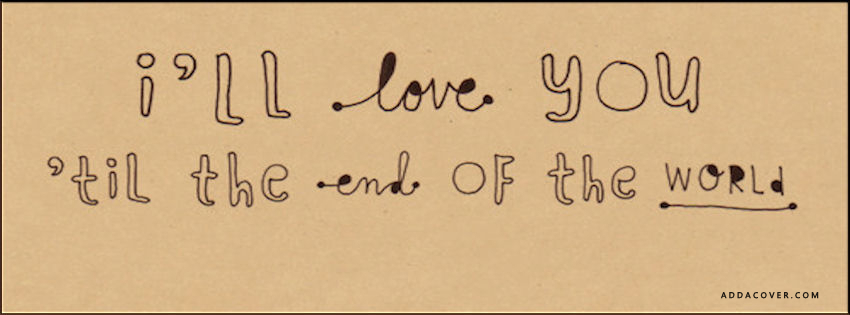 i'll love you
'til the end of the world
ADDACOVER.COM